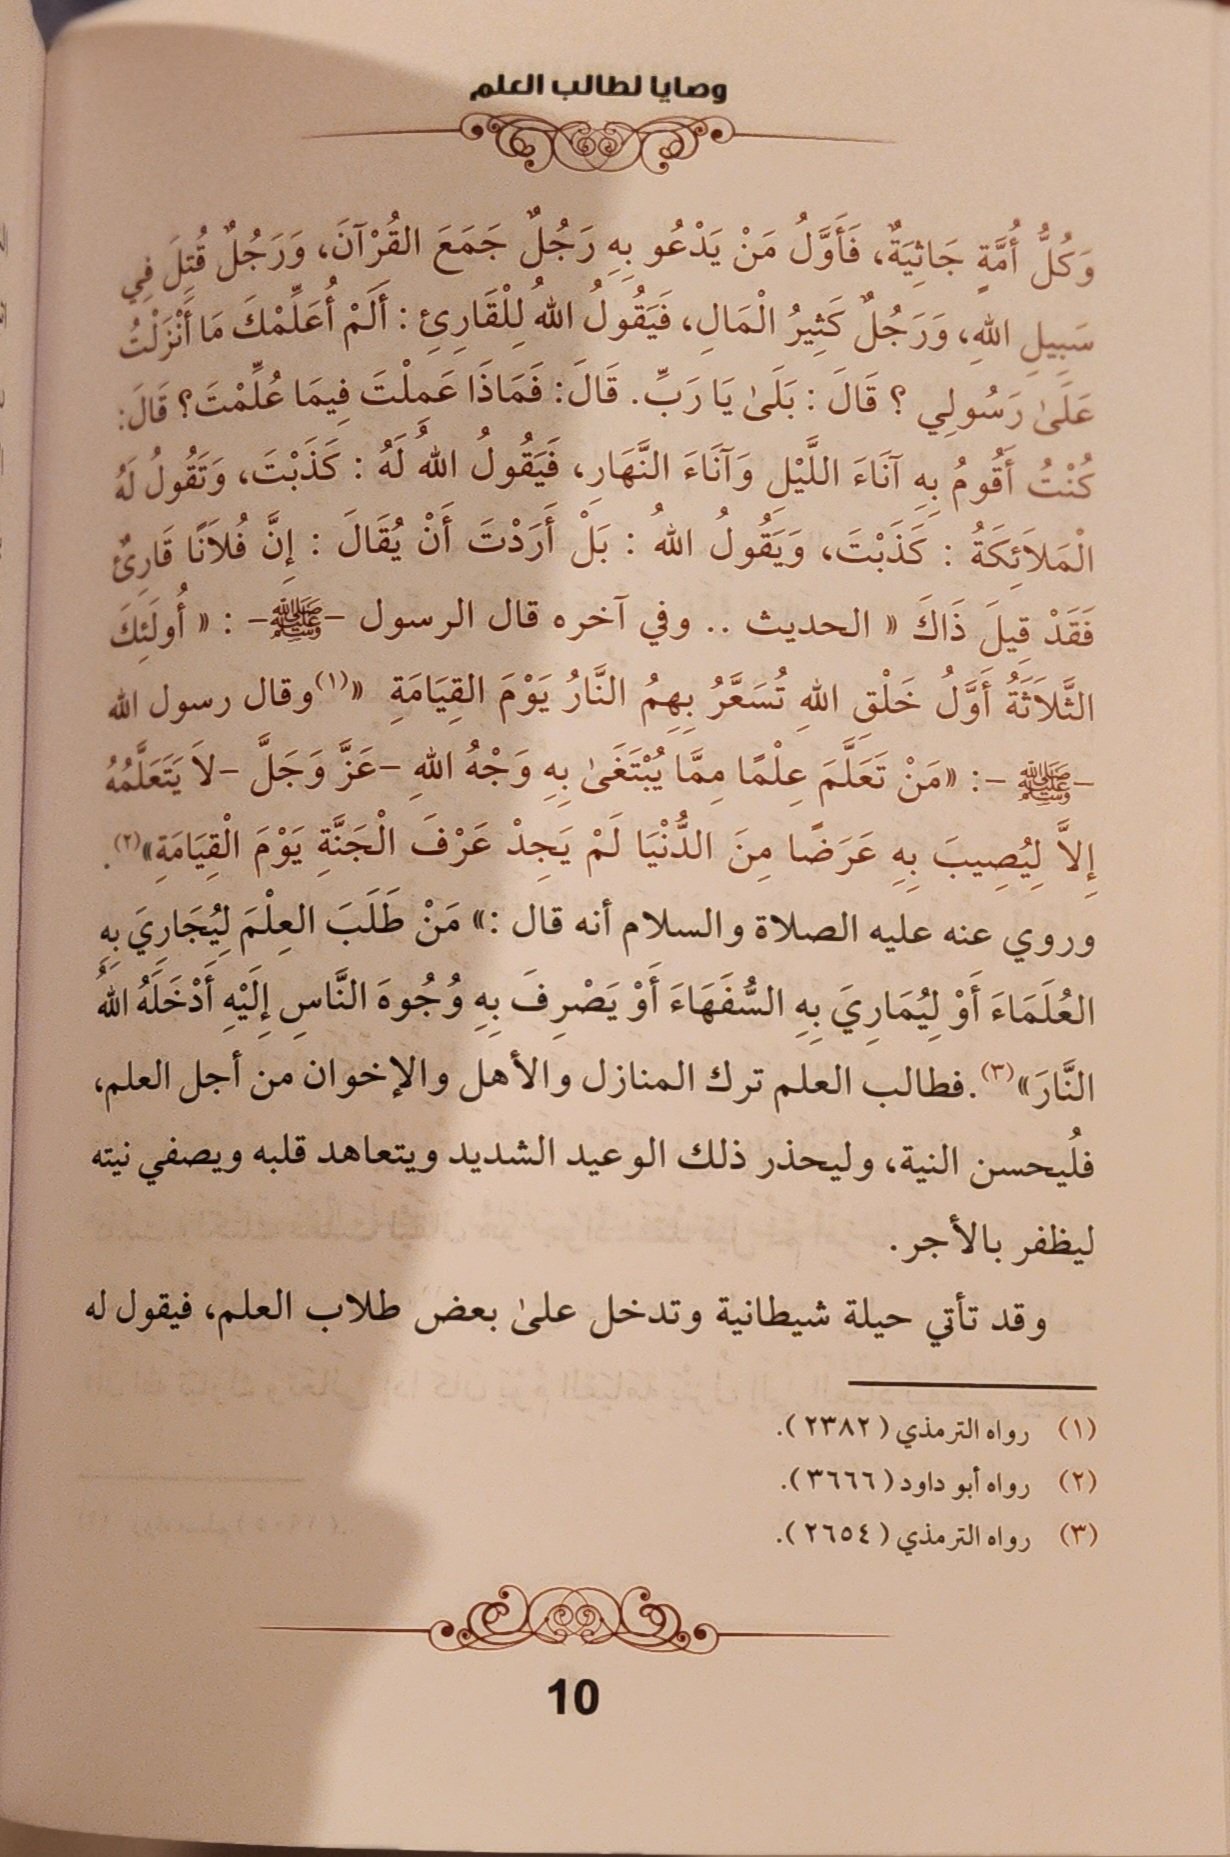 وصايا لطالب العلم
وَكُلُّ أُمَّةٍ جَاثِيَةٌ، فَأَوَّلُ مَنْ يَدْعُو بِهِ رَجُلٌ جَمَعَ القُرْآنَ، وَرَجُلٌ قُتِلَ فِي
سَبِيلِ اللهِ، وَرَجُلٌ كَثِيرُ الْمَالِ، فَيَقُولُ اللهُ لِلْقَارِئِ : أَلَمْ أُعَلِّمْكَ مَا أَنْزَلْتُ
عَلَىٰ رَسُولِي ؟ قَالَ : بَلَىٰ يَا رَبِّ. قَالَ: فَمَاذَا عَمِلْتَ فِيمَا عُلِّمْتَ؟ قَالَ:
كُنْتُ أَقُومُ بِهِ آنَاءَ اللَّيْلِ وَآنَاءَ النَّهَارِ، فَيَقُولُ اللهُ لَهُ : كَذَبْتَ، وَتَقُولُ لَهُ
الْمَلَائِكَةُ : كَذَبْتَ، وَيَقُولُ اللهُ : بَلْ أَرَدْتَ أَنْ يُقَالَ : إِنَّ فُلَانًا قَارِئٌ
فَقَدْ قِيلَ ذَاكَ « الحديث .. وفي آخره قال الرسول -ﷺ- : « أُولَئِكَ
الثَّلَاثَةُ أَوَّلُ خَلْقِ اللهِ تُسَعَّرُ بِهِمُ النَّارُ يَوْمَ القِيَامَةِ »(١) وقال رسول الله
-ﷺ -: «مَنْ تَعَلَّمَ عِلْمًا مِمَّا يُبْتَغَىٰ بِهِ وَجْهُ اللهِ -عَزَّ وَجَلَّ -لَا يَتَعَلَّمُهُ
إِلَّا لِيُصِيبَ بِهِ عَرَضًا مِنَ الدُّنْيَا لَمْ يَجِدْ عَرْفَ الْجَنَّةِ يَوْمَ الْقِيَامَةِ»(٢).
وروي عنه عليه الصلاة والسلام أنه قال :» مَنْ طَلَبَ العِلْمَ لِيُجَارِيَ بِهِ
العُلَمَاءَ أَوْ لِيُمَارِيَ بِهِ السُّفَهَاءَ أَوْ يَصْرِفَ بِهِ وُجُوهَ النَّاسِ إِلَيْهِ أَدْخَلَهُ اللهُ
النَّارَ»(٣).فطالب العلم ترك المنازل والأهل والإخوان من أجل العلم،
فلُيحسن النية، وليحذر ذلك الوعيد الشديد ويتعاهد قلبه ويصفي نيته
ليظفر بالأجر.
وقد تأتي حيلة شيطانية وتدخل علىٰ بعض طلاب العلم، فيقول له
(١) رواه الترمذي (٢٣٨٢).
(٢) رواه أبو داود (٣٦٦٦).
(٣) رواه الترمذي (٢٦٥٤).
10